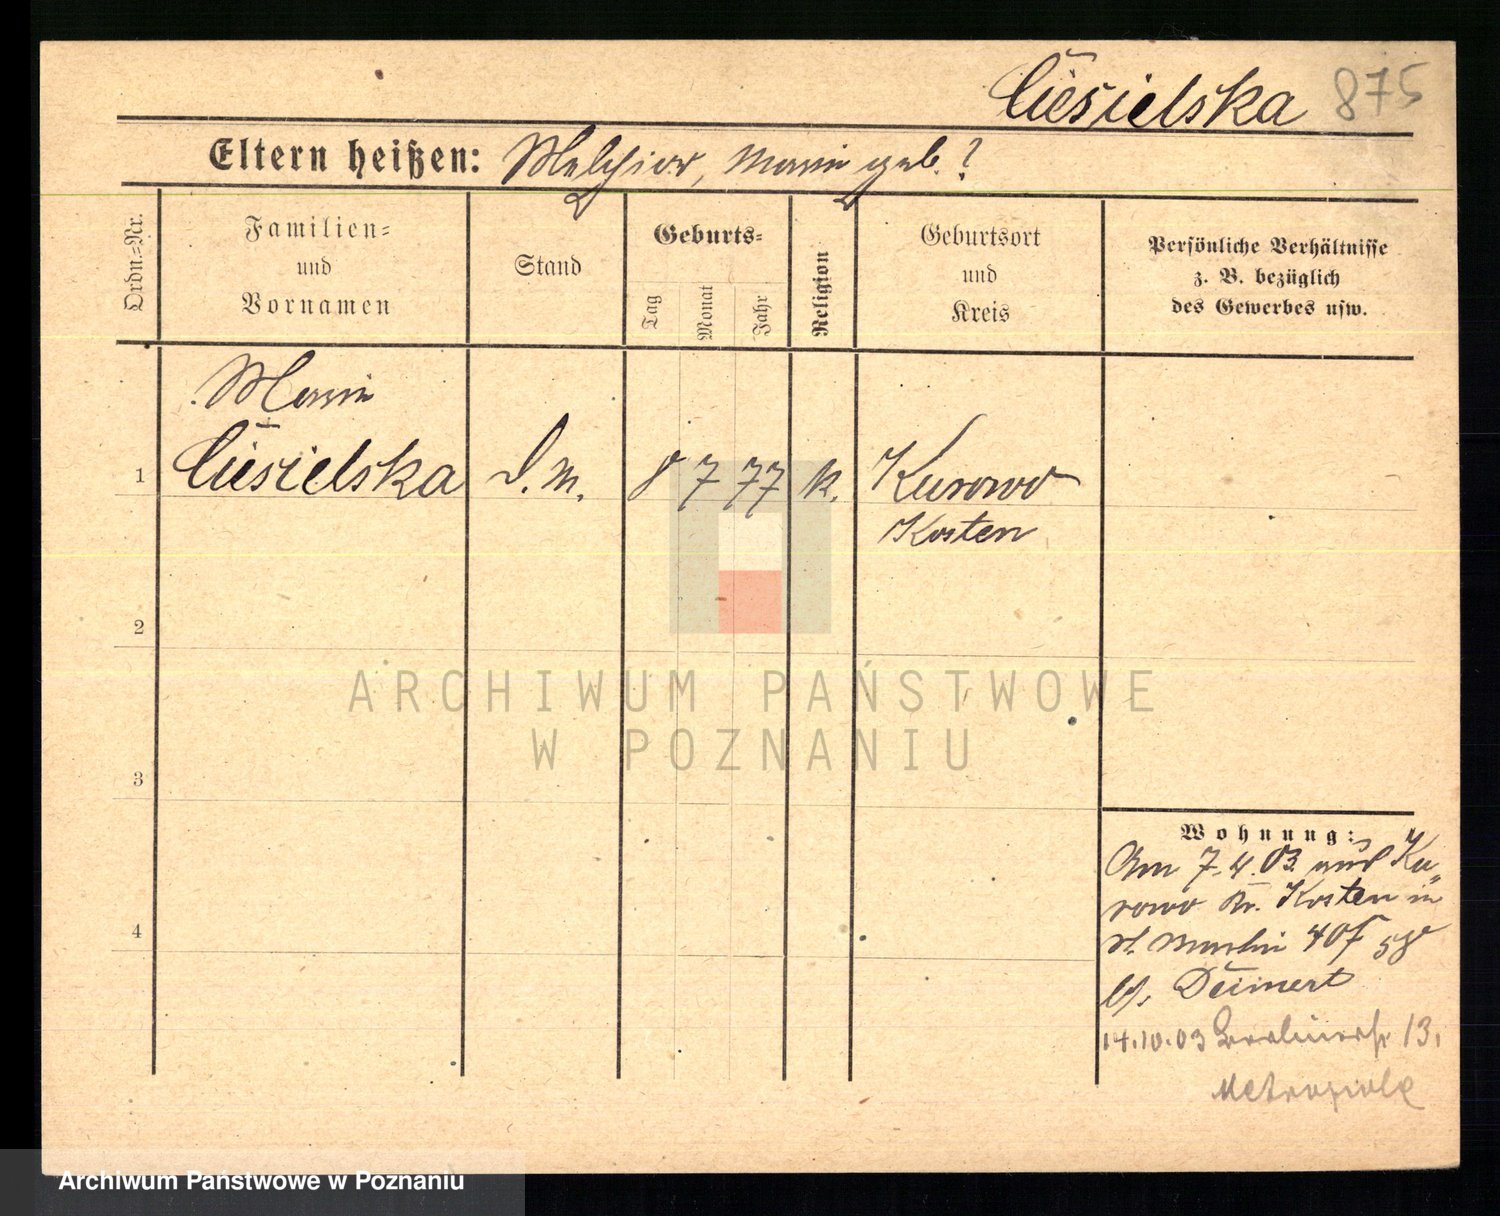 Ciesielska 875
Eltern heißen: Melchior, Marie geb. ?
Ordn.=Nr.
Familien=
und
Vornamen
Stand
Geburts=
Tag
Monat
Jahr
Religion
Geburtsort
und
Kreis
Persönliche Verhältnisse
z. B. bezüglich
des Gewerbes usw.
Marie
1 Ciesielska D. M. 8 7 77 k. Kurowo
Kosten
2
3
4
Wohnung:
Am 7.4.03 aus Ku„
rowo Kr. Kosten in
St. Martin 40
bei
14.10.03 Berlinerstr 13,
ARCHIWUM PAŃSTWOWE
W POZNANIU
Archiwum Państwowe w Poznaniu